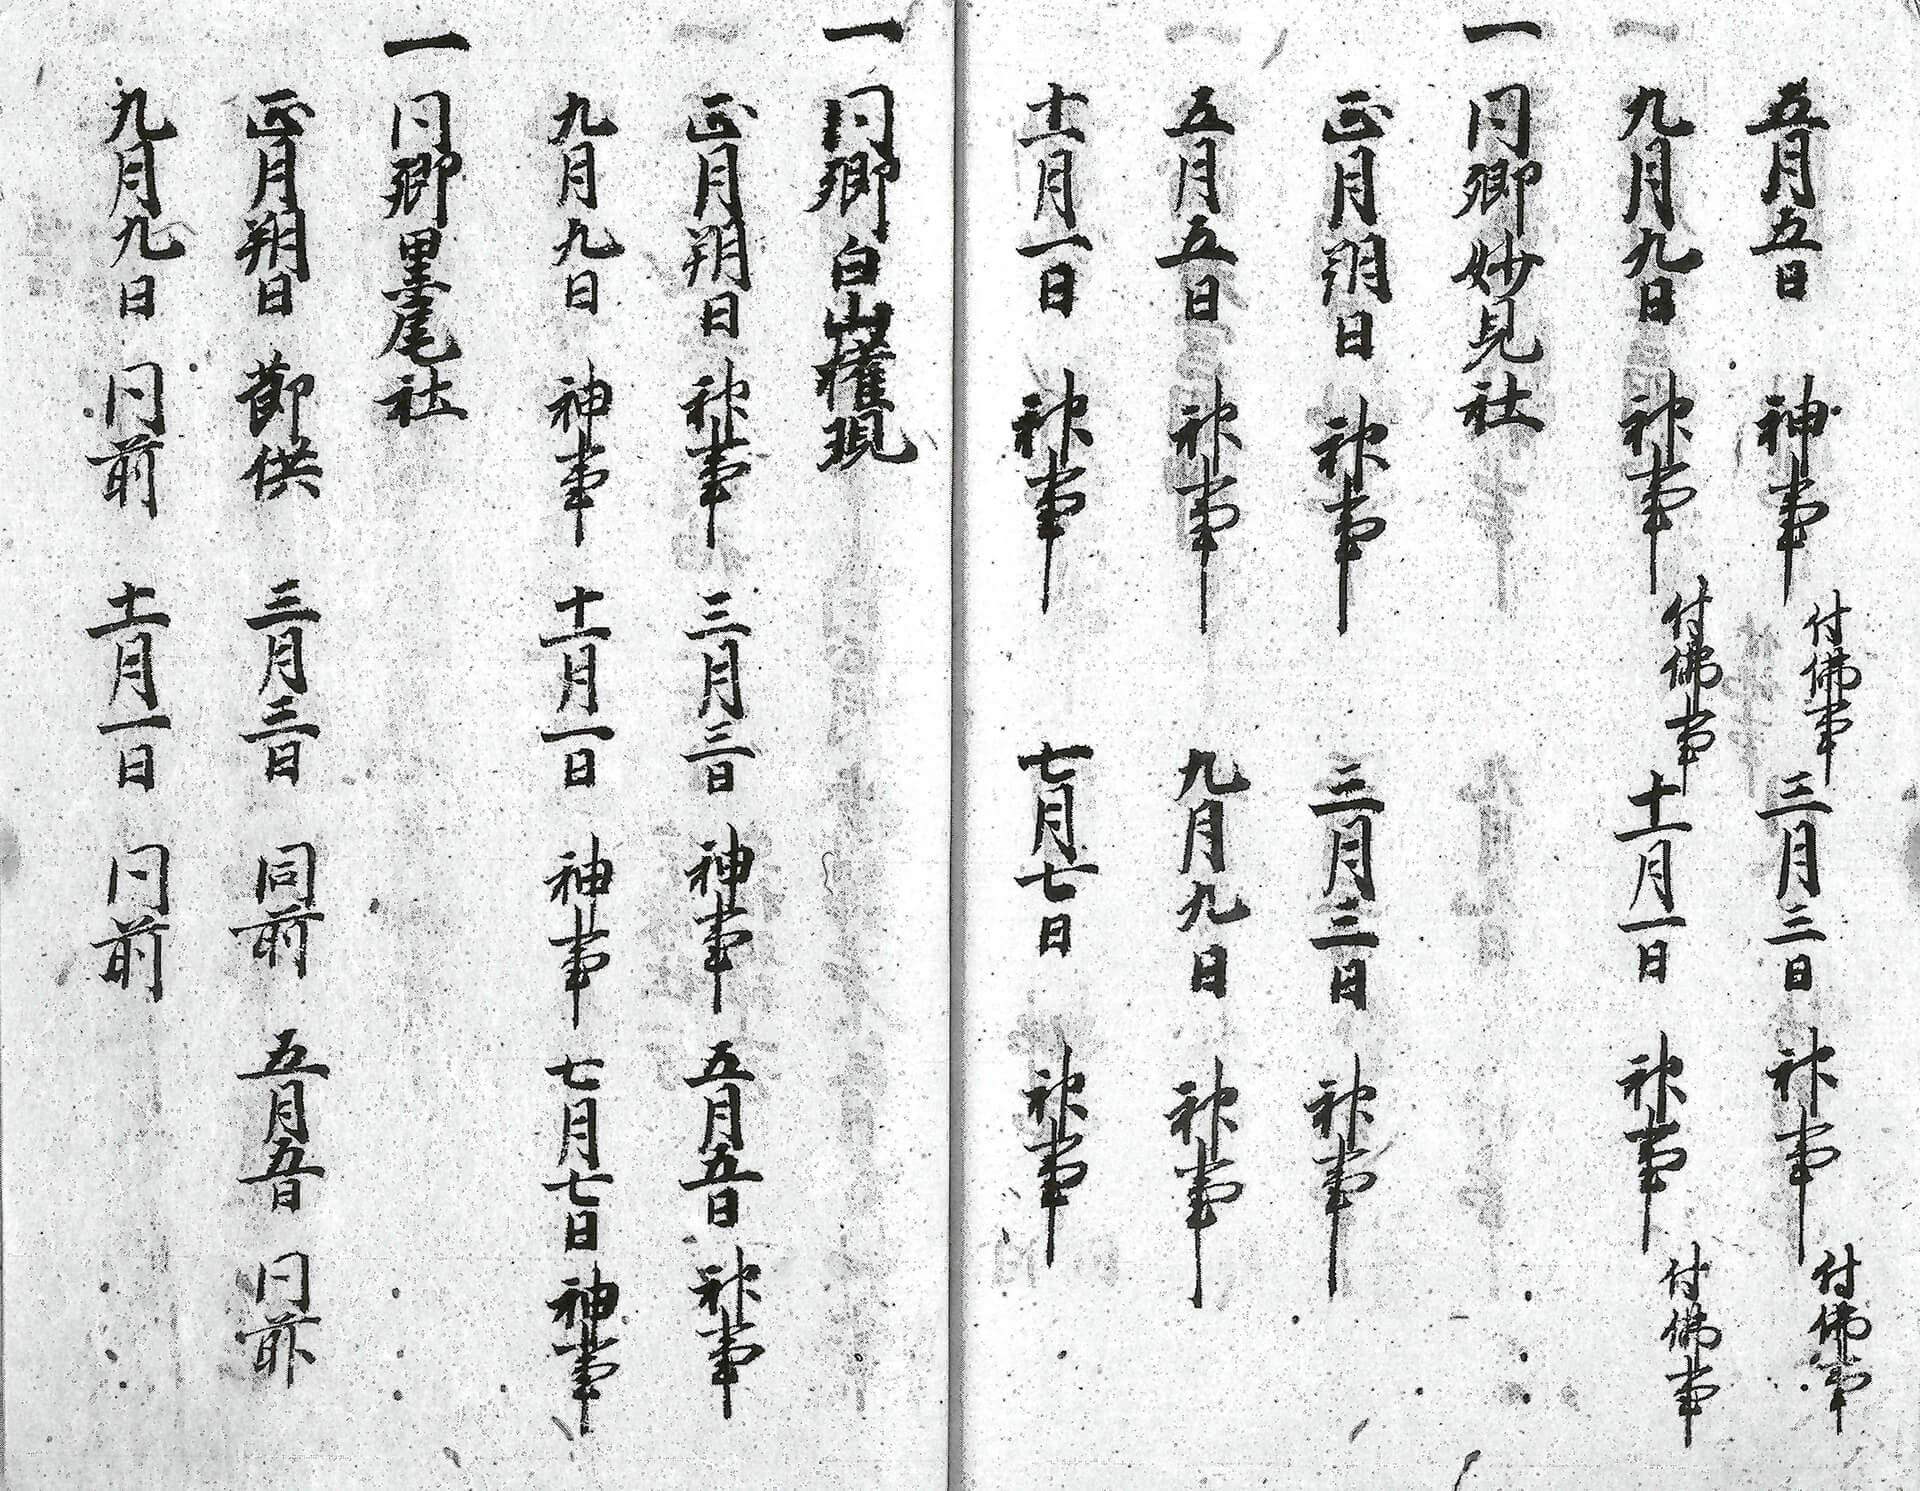 五月五日 神事 付佛事 三月三日 神事 付佛事
九月九日 神事 付佛事 十一月一日 神事 付佛事
一 同郷妙見社
正月朔日 神事 三月三日 神事
五月五日 神事 九月九日 神事
十一月一日 神事 七月七日 神事
一 同郷白山権現
正月朔日 神事 三月三日 神事 五月五日 神事
九月九日 神事 十一月一日 神事 七月七日 神事
一 同郷黒尾社
正月朔日 節供 三月三日 同前 五月五日 同前
九月九日 同前 十一月一日 同前